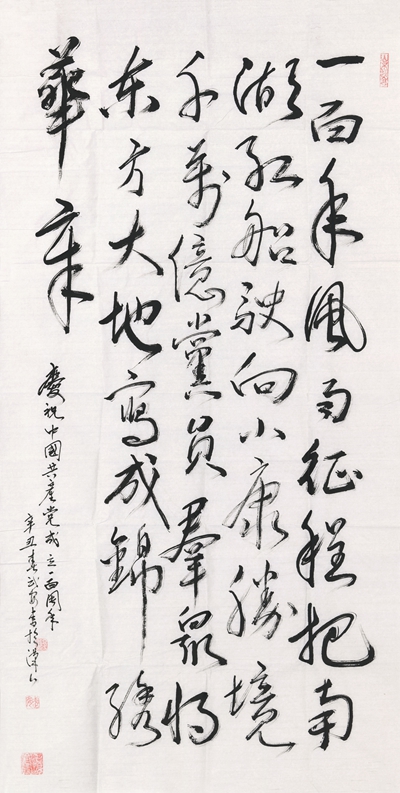 一百年風雨征程把南
湖紅船駛向小康勝境
千萬億黨員羣衆將
東方大地寫成錦繡
華章
慶祝中國共產党成立一百周年
辛丑春武